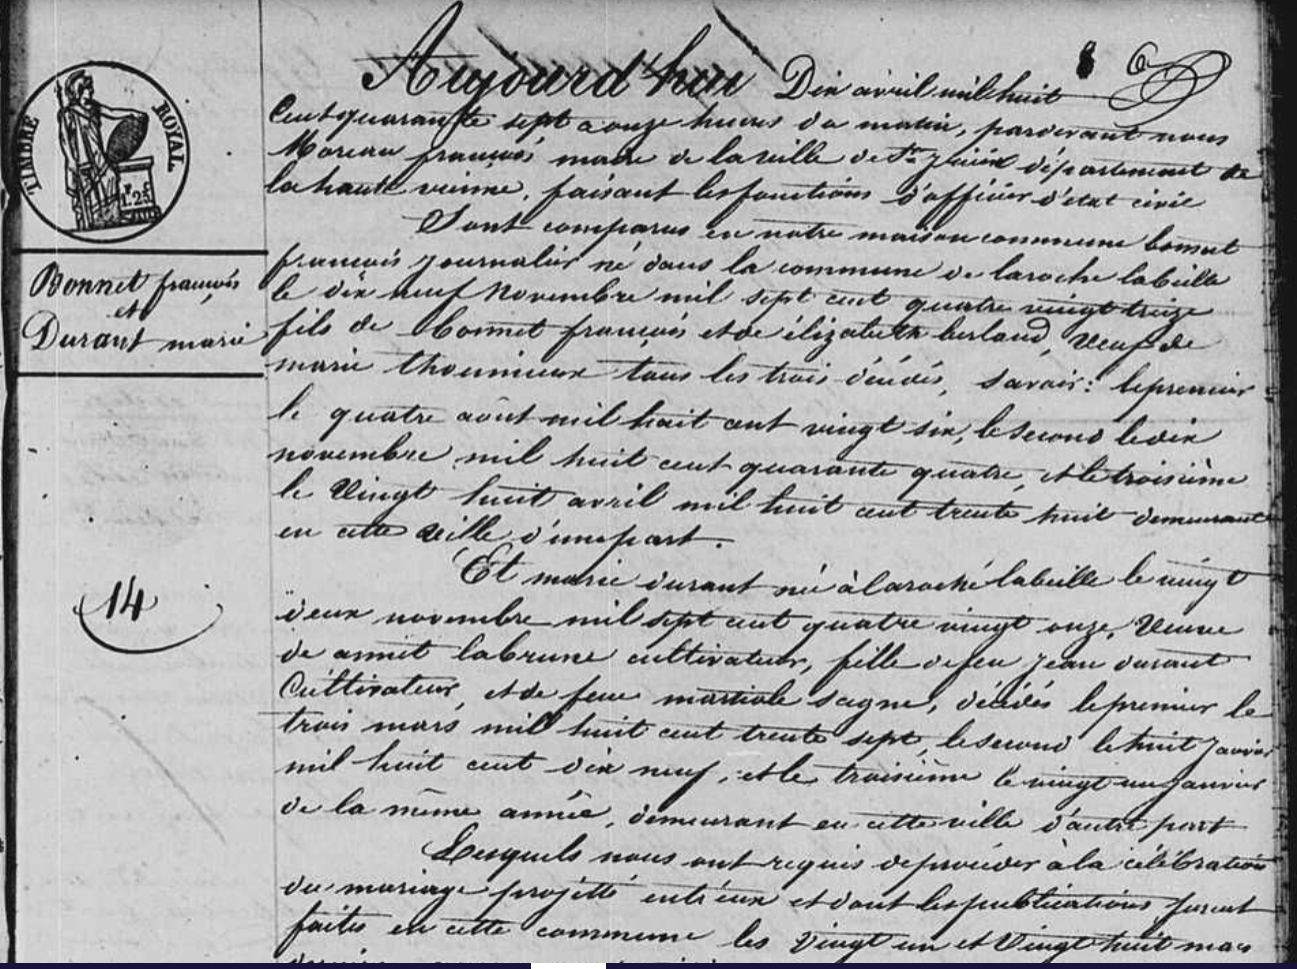 Aujourd'hui Dix avril mil huit
Cent quarante sept a onze heures du matin, pardevant nous
Moreau françois maire de la ville de St Junien département de
la haute vienne, faisant les fonctions d'officier d'état civil
Sont comparus en notre maison commune bonnet
françois journalier né dans la commune de laroche labeille
le dix neuf Novembre mil sept cent quatre vingt treize
fils de bonnet françois et de élizabeth berland, veuf de
marie thoumieux tous les trois décédés, savoir: le premier
le quatre août mil huit cent vingt six, le second le dix
novembre mil huit cent quarante quatre, et le troisième
le Vingt huit avril mil huit cent trente huit demeurant
en cette ville d'une part.
Et marie durant née à laroche labeille le vingt
deux novembre mil sept cent quatre vingt onze, Veuve
de labrune cultivateur, fille de feu jean durant
Cultivateur, et de feue martiale sagne, décédés le premier le
trois mars mil huit cent trente sept, le second le huit janvier
mil huit cent dix neuf, et le troisième le vingt un janvier
de la même année, demeurant en cette ville d'autre part
Lesquels nous ont requis de procéder à la célébration
du mariage projetté entr'eux et dont les publications furent
faites en cette commune les Vingt un et Vingt huit mars
TIMBRE ROYAL
1F.25
Bonnet françois
et
Durant marie
14